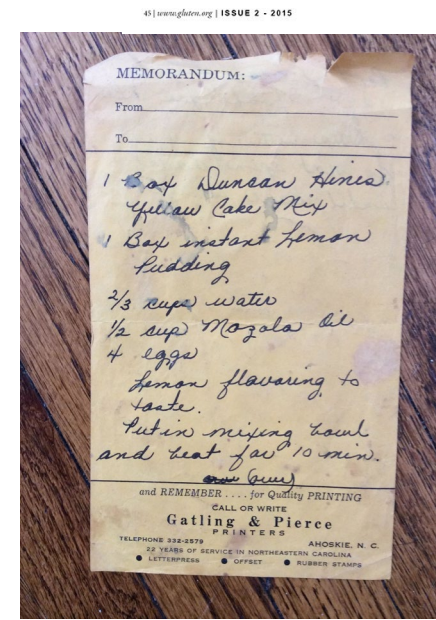 45 | www.gluten.org | ISSUE 2 - 2015
MEMORANDUM:
From
To
1 Box Duncan Hines
Yellow Cake Mix
1 Box instant Lemon
Pudding
2/3 cups water
1/2 cup Mazola Oil
4 eggs
Lemon flavoring to
taste.
Put in mixing bowl
and beat for 10 min.
(over)
and REMEMBER . . . . for Quality PRINTING
CALL OR WRITE
Gatling & Pierce
PRINTERS
TELEPHONE 332-2579 AHOSKIE, N. C.
22 YEARS OF SERVICE IN NORTHEASTERN CAROLINA
● LETTERPRESS ● OFFSET ● RUBBER STAMPS